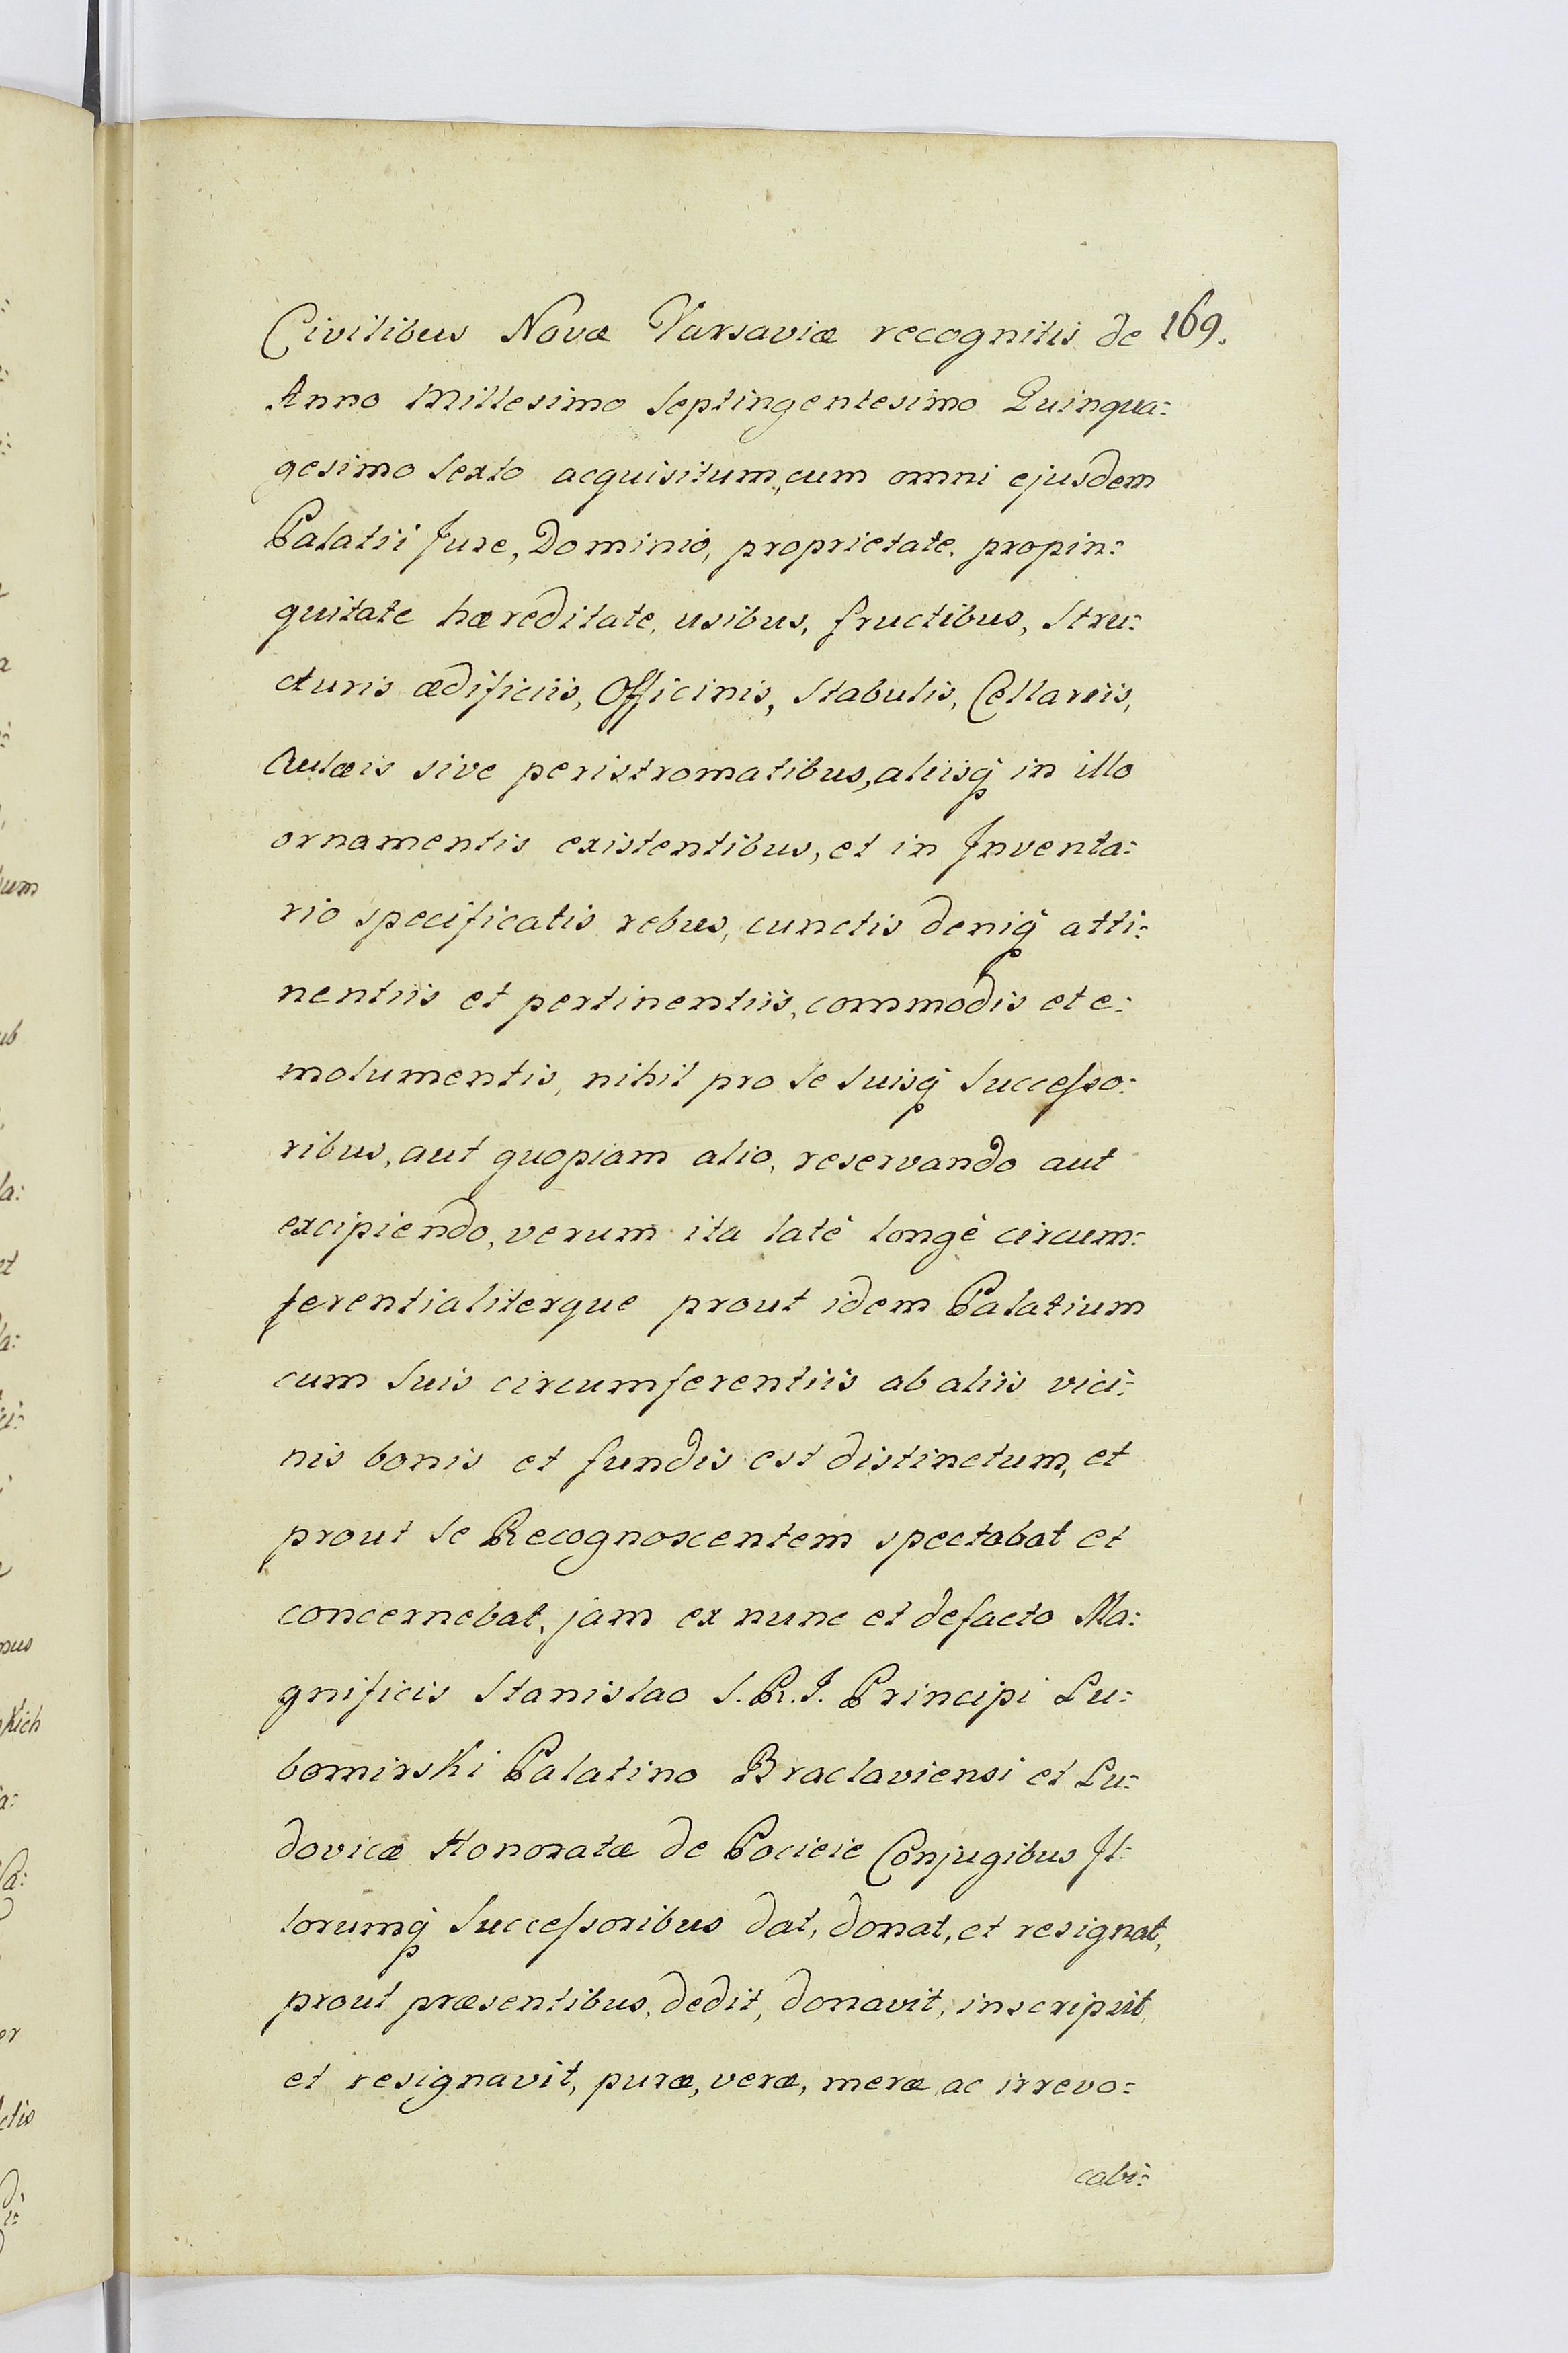 Civilibus Novæ Varsaviæ recognitis de 169.
Anno Millesimo Septingentesimo Quinqua:
gesimo Sexto acquisitum, cum omni ejusdem
Palatii Jure, Dominio, proprietate, propin:
quitate hæreditate, usibus, fructibus, Stru:
cturis ædificiis, Officinis, Stabulis, Cellariis,
Aulæis sive peristromatibus, aliisq́ in illo
ornamentis existentibus, et in Inventa:
rio specificatis rebus, cunctis deniq́ atti:
nentiis et pertinentiis, commodis et e:
molumentis, nihil pro Se Suisq́ Succeſso:
ribus, aut quopiam alio, reservando aut
excipiendo, verum ita latè longè circum:
ferentialiterque prout idem Palatium
cum Suis circumferentiis ab aliis vici:
nis bonis et fundis est distinctum, et
prout Se Recognoscentem spectabat et
concernebat, jam ex nunc et defacto Ma:
gnificis Stanislao S. R. I. Principi Lu:
bomirski Palatino Braclaviensi et Lu:
dovicæ Honoratæ de Pocieie Conjugibus Il:
lorumq́ Succeſsoribus dat, donat, et resignat,
prout præsentibus, dedit, donavit, inscripsit,
et resignavit, puræ, veræ, meræ ac irrevo:
cabi:
um
ub
la:
et
kich
er
ctis